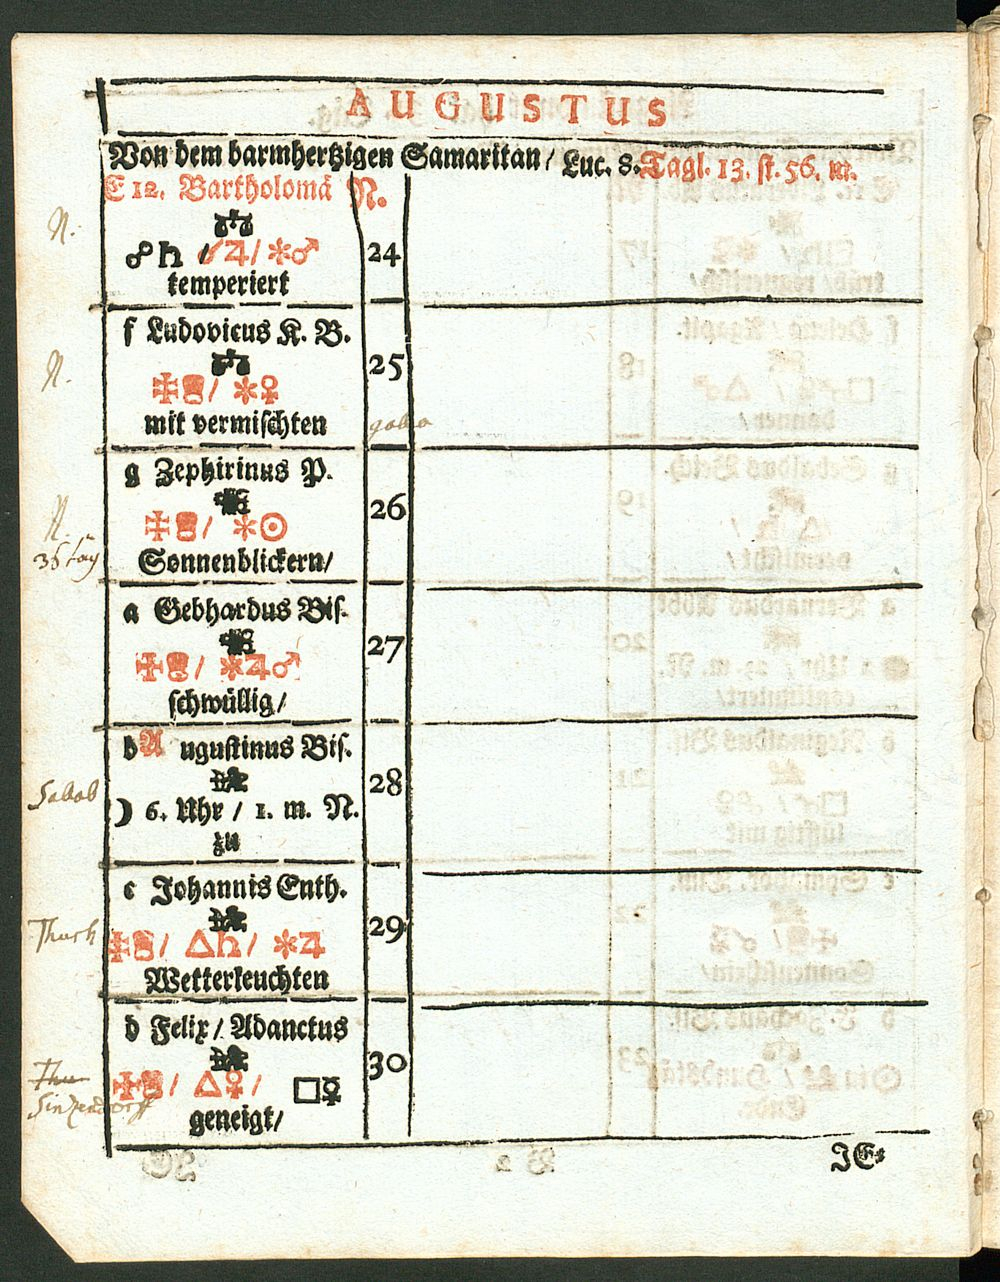 AUGUSTUS
Von dem barmhertzigen Samaritan / Luc. 8. Tagl. 13. st. 56. m.
E 12. Bartholomä N.
N.
☍♄ / ☌♃ / ✱♂ 24
temperiert
f Ludovicus K. B.
N.
25
/ ✱♀
mit vermischten
g Zephirinus P.
26
N.
/ ✱☉
Sonnenblickern /
a Gebhardus Bis.
27
/ ✱♃♂
schwüllig /
b Augustinus Bis.
28
☽ 6. Uhr / 1. m. N.
zu
c Johannis Enth.
29
/ △♄ / ✱♃
Wetterleuchten
d Felix / Adanctus
30
/ △♀ / □☿
Sinzendorff
geneigt /
JE-